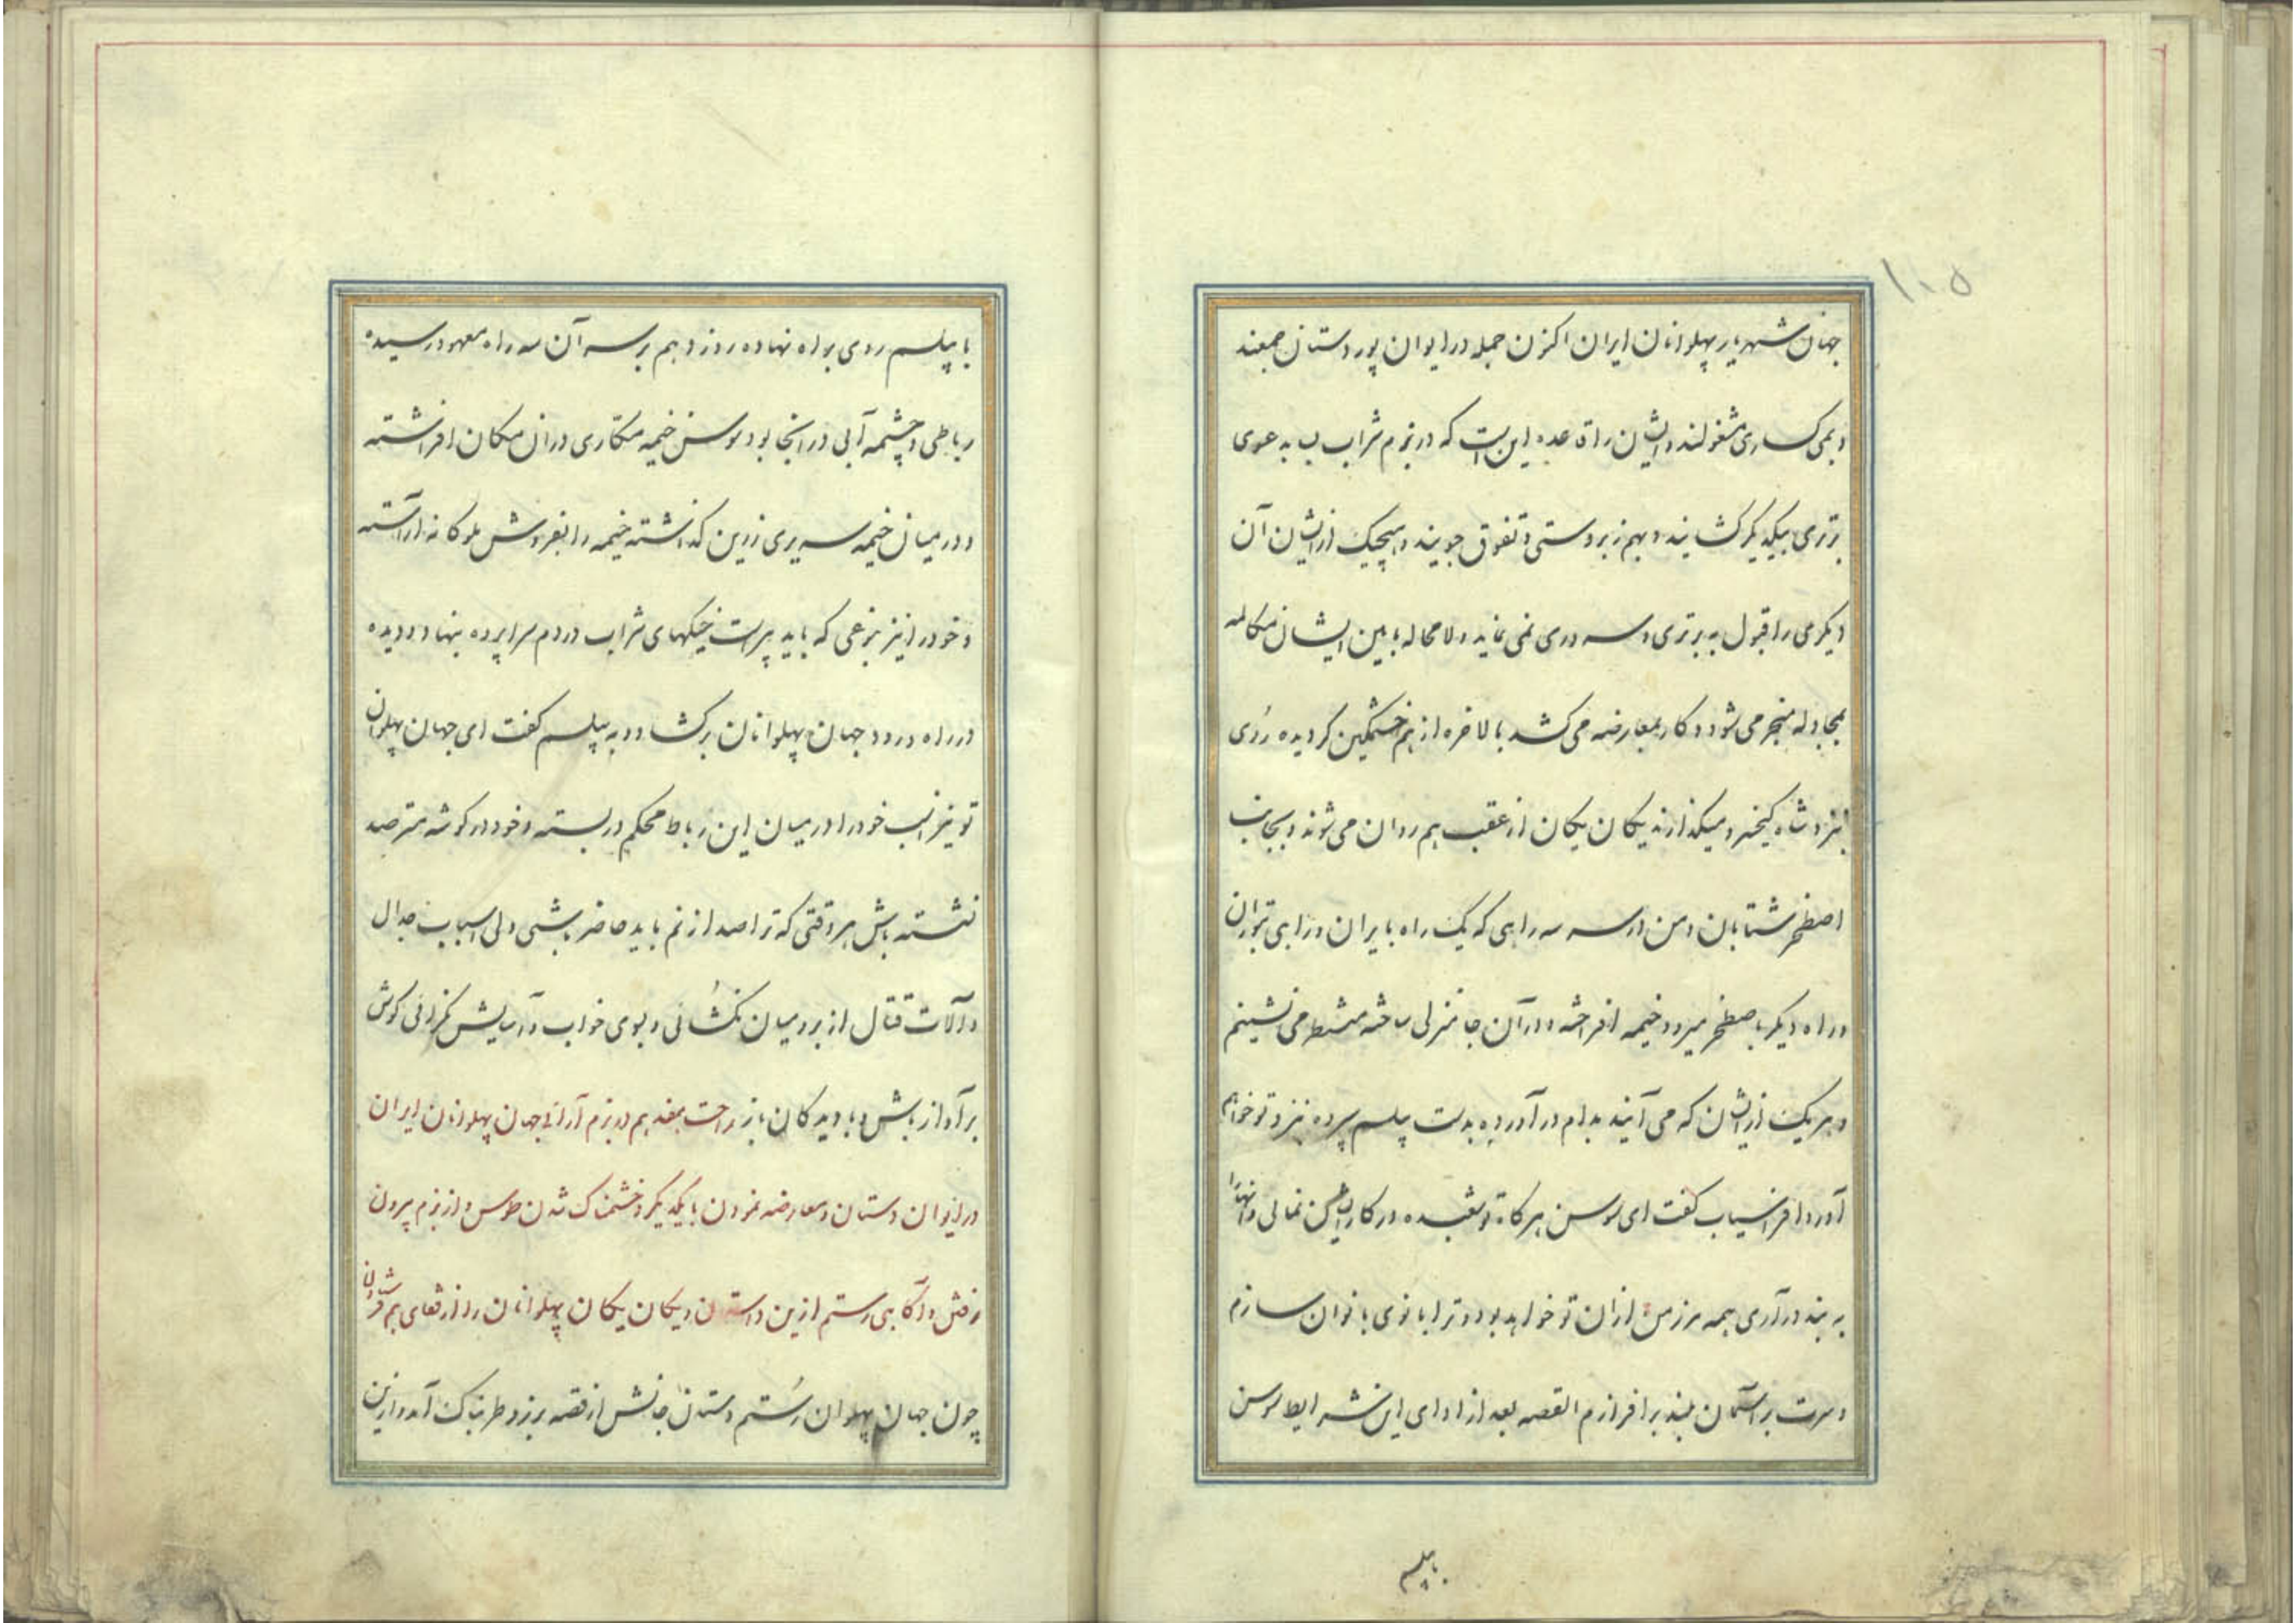 ۱۰۵
جهان شهریار پهلوانان ایران اکنون جمله در ایوان پور دستان جمعند
و بمی کساری مشغولند و ایشان را قاعده این است که در بزم شراب لب بدعوی
برتری بیکدیگر کشایند و بهم زبردستی و تفوق جویند و هیچیک از ایشان آن
دیگرمی را قبول به برتری و سروری نمی نماید و لامحاله مابین ایشان مکالمه
بمجادله منجر می شود و کار بمعارضه می کشد بالاخره از هم خشمگین کردیده روی
بنزد شاه کیخسرو میکذارند یکان یکان از عقب هم روان می شوند و بجانب
اصطخر شتابان و من در سر سه راهی که یک راه بایران و راهی بتوران
و راه دیگر باصطخر میرود خیمه افراخته و در آن جا منزلی ساخته منتظر می نشینم
و هر یک از ایشان که می آیند بدام در آورده بدست پیلسم سپرده نزد تو خواهم
آورد افراسیاب کفت ای سوسن هرکاه تو شعبده در کار ایشان نمائی و آنها را
به بند در آری همه مرز من از ان تو خواهد بود و ترا بانوی بانوان سازم
و سرت بر آسمان بلند برافرازم القصه بعد از ادای این شرایط سوسن
با پیلسم
با پیلسم روی براه نهاده روز دهم بر سر آن سه راه معهود رسیده
رباطی و چشمه آبی در انجا بود سوسن خیمه مکاری در ان مکان افراشته
و در میان خیمه سریری زرین کذاشته خیمه را بفروش ملوکانه اراسته
و خود را نیز بنوعی که باید پیراست خیکهای شراب در دم سراپرده بنهاد و دیده
در راه ورود جهان پهلوانان برکشاد و به پیلسم کفت ای جهان پهلوان
تو نیز اسب خود را در میان این رباط محکم در بسته و خود در کوشه مترصد
نشسته باش هر وقتی که ترا صدا زنم باید حاضر باشی ولی اسباب جدال
و آلات قتال از بر و میان نکشائی و بوی خواب و آسایش نکرائی کوش
بر آواز باش و با دیدکان باز راحت بعد هم در بزم آرائی جهان پهلوانان ایران
در ایوان دستان و معارضه نمودن با یکدیکر و خشمناک شدن طوس و از بزم بیرون
رفتن و آکاهی رستم ازین داستان و یکان یکان پهلوانان را از قفای هم فرستادن
چون جهان پهلوان رستم دستان جانش از قصه برزو طربناک آمد و ازین